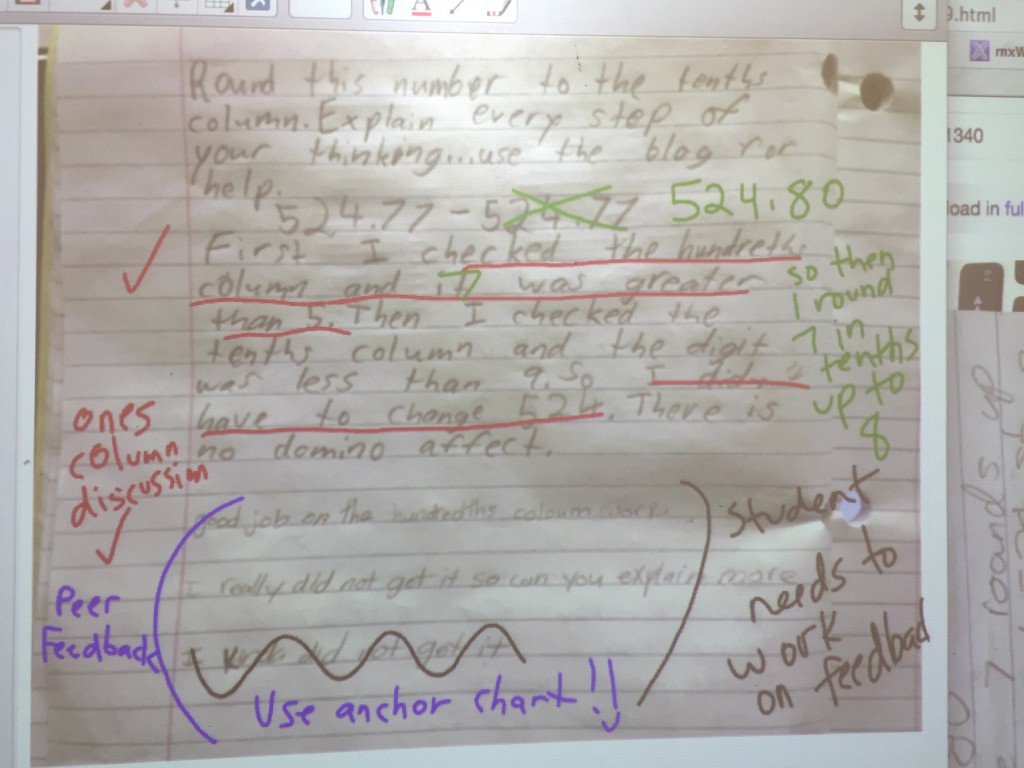 Round this number to the tenths
column. Explain every step of
your thinking...use the blog for
help.
524.77 - 524.77 524.80
First I checked the hundreths
column and it 7 was greater
than 5. Then I checked the
tenths column and the digit
was less than 9. So I did
have to change 524. There is
no domino affect.
so then
I round
7 in
tenths
up to
8
ones
column
discussion
good job on the hundredths coloum work.
I really did not get it so can you explain more
I kinda did not get it
Peer
Feedback
Use anchor chart!!
Student
needs to
work
on feedbad
9.html
mxW
1340
load in full
7 rounds up